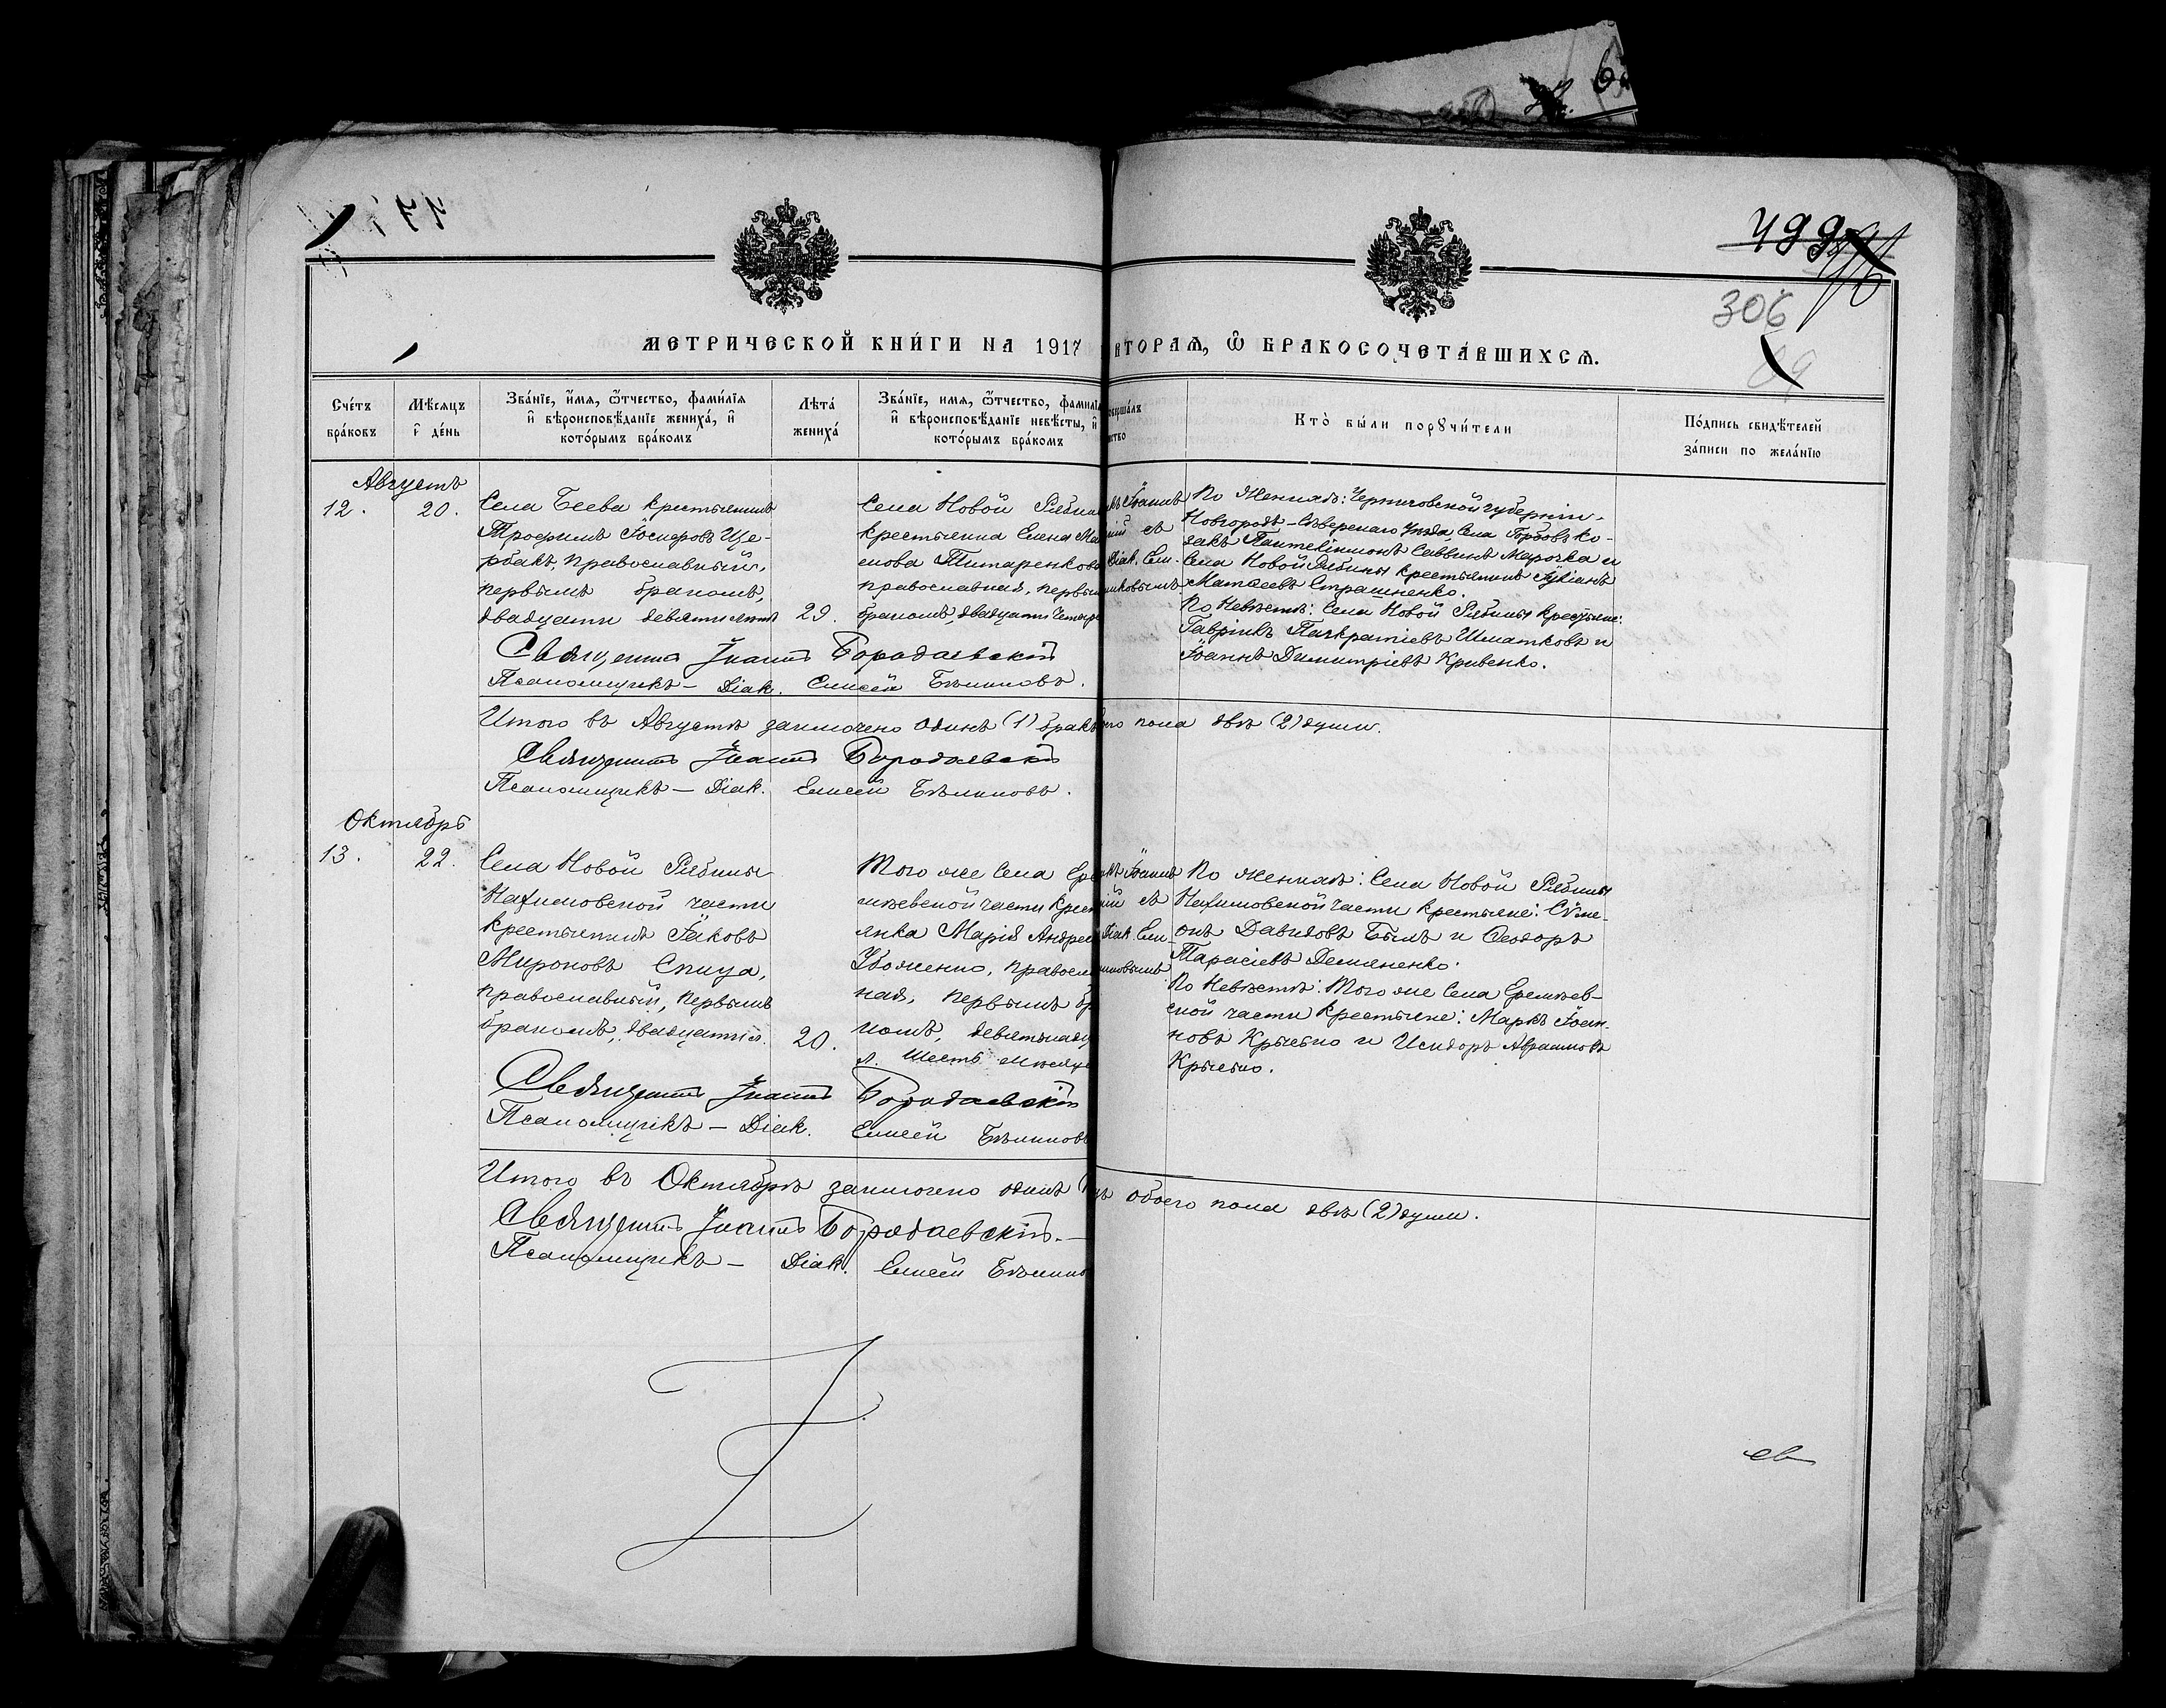 499
306
МЕТРИЧЕСКОЙ КНИ́ГИ НА 1917
ВТОРАѦ, Ѿ БРАКОСОЧЕТА́ВШИХСѦ.
Сче́тъ бра́ковъ
Мѣ́сяцъ и҆ де́нь
Зва́нїе, и҆́мя, ѻ҆́тчество, фами́лїя
и҆ вѣроисповѣ́данїе жениха̀, и҆
кото́рымъ бра́комъ
Лѣта̀ жениха̀
Зва́нїе, имя, ѻ҆́тчество, фамилїя
и҆ вѣроисповѣ́данїе невѣ́сты, и҆
кото́рымъ бра́комъ
Кто̀ бы́ли порꙋчи́тели
По́дпись свидѣ́телей
за́писи по жела́нїю
Августъ
12.
20.
Села Беева крестьянинъ
Трофимъ Іосифовъ Ще-
рбакъ, православный,
первымъ бракомъ,
двадцати девяти лѣтъ
29.
Села Новой Рябины
крестьянка Елена
Титаренкова
православная, первымъ
бракомъ, двадцати
Іоаннъ
ій съ
Діак. Ели-
По Женихѣ: Черниговской губерніи,
Новгородъ-Сѣверскаго уѣзда, Села Горбовъ ко-
закъ Пантелеимонъ Саввинъ Марочка и
Села Новой Рябины крестьянинъ Іуліанъ
Матѳеевъ Страшненко.
По Невѣстѣ: Села Новой Рябины крестьяне:
Гавріилъ Панкратіевъ Шматковъ и
Іоаннъ Димитріевъ Кривенко.
Священникъ Іоаннъ Бородаевскій
Псаломщикъ — Діак. Елисей Бѣликовъ.
Итого въ Августѣ заключено одинъ (1) бракъ
пола двѣ (2) души.
Священникъ Іоаннъ Бородаевскій
Псаломщикъ — Діак. Елисей Бѣликовъ.
Октябрь
13.
22.
Села Новой Рябины
части
крестьянинъ Іаковъ
Мироновъ Спица,
православный, первымъ
бракомъ, двадцати л.
20.
Того же Села
части
Марія
православ
ная, первымъ
л. шесть
Іоаннъ
ій съ
Діак. Ели-
По Женихѣ: Села Новой Рябины
части крестьяне: Сѵме-
онъ Давидовъ Быль и Ѳеодоръ
Тарасіевъ Демяненко.
По Невѣстѣ: Того же Села Еремѣев-
ской части крестьяне: Маркъ Іоан-
новъ и Исидоръ Авраамовъ
Священникъ Іоаннъ Бородаевскій
Псаломщикъ — Діак. Елисей Бѣликовъ
Итого въ Октябрѣ заключено одинъ
обоего пола двѣ (2) души.
Священникъ Іоаннъ Бородаевскій. —
Псаломщикъ — Діак. Елисей